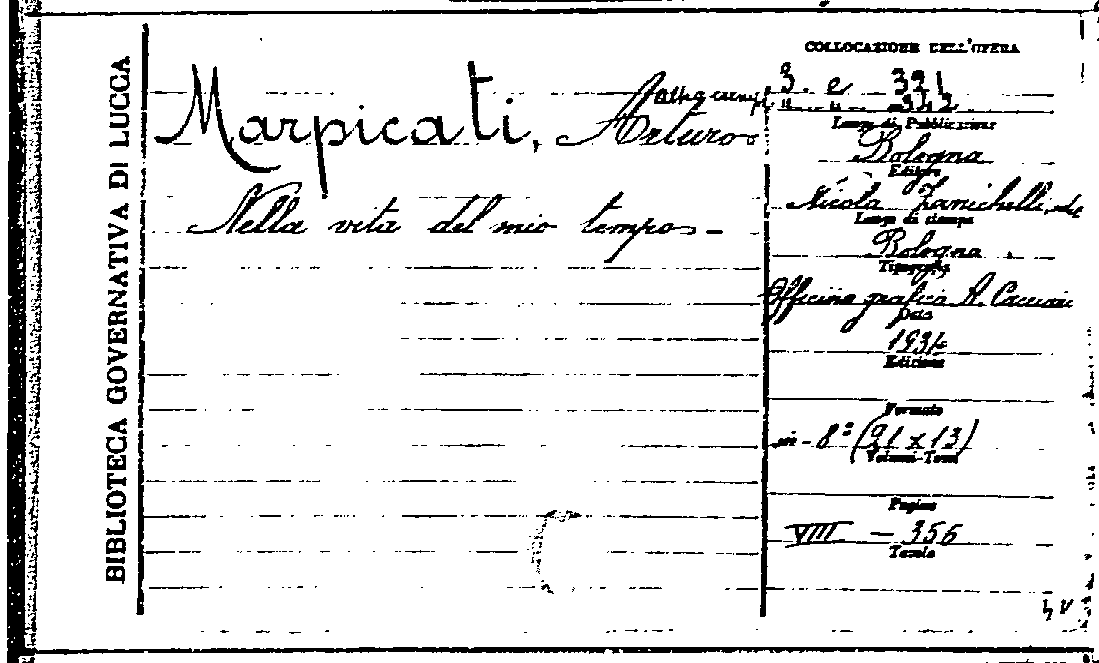 BIBLIOTECA GOVERNATIVA DI LUCCA
Marpicati, Arturo
Nella vita del mio tempo -
COLLOCAZIONE DELL'OPERA
3. e 321
altra
" " 
Luogo di Pubblicazione
Bologna
Editore
Nicola Zanichelli, edit
Luogo di stampa
Bologna
Tipografia
Officina grafica A. Cacciari
Data
1934
Edizione
Formato
in - 8° (21 x 13)
Volumi-Tomi
Pagine
VIII - 356
Tavole